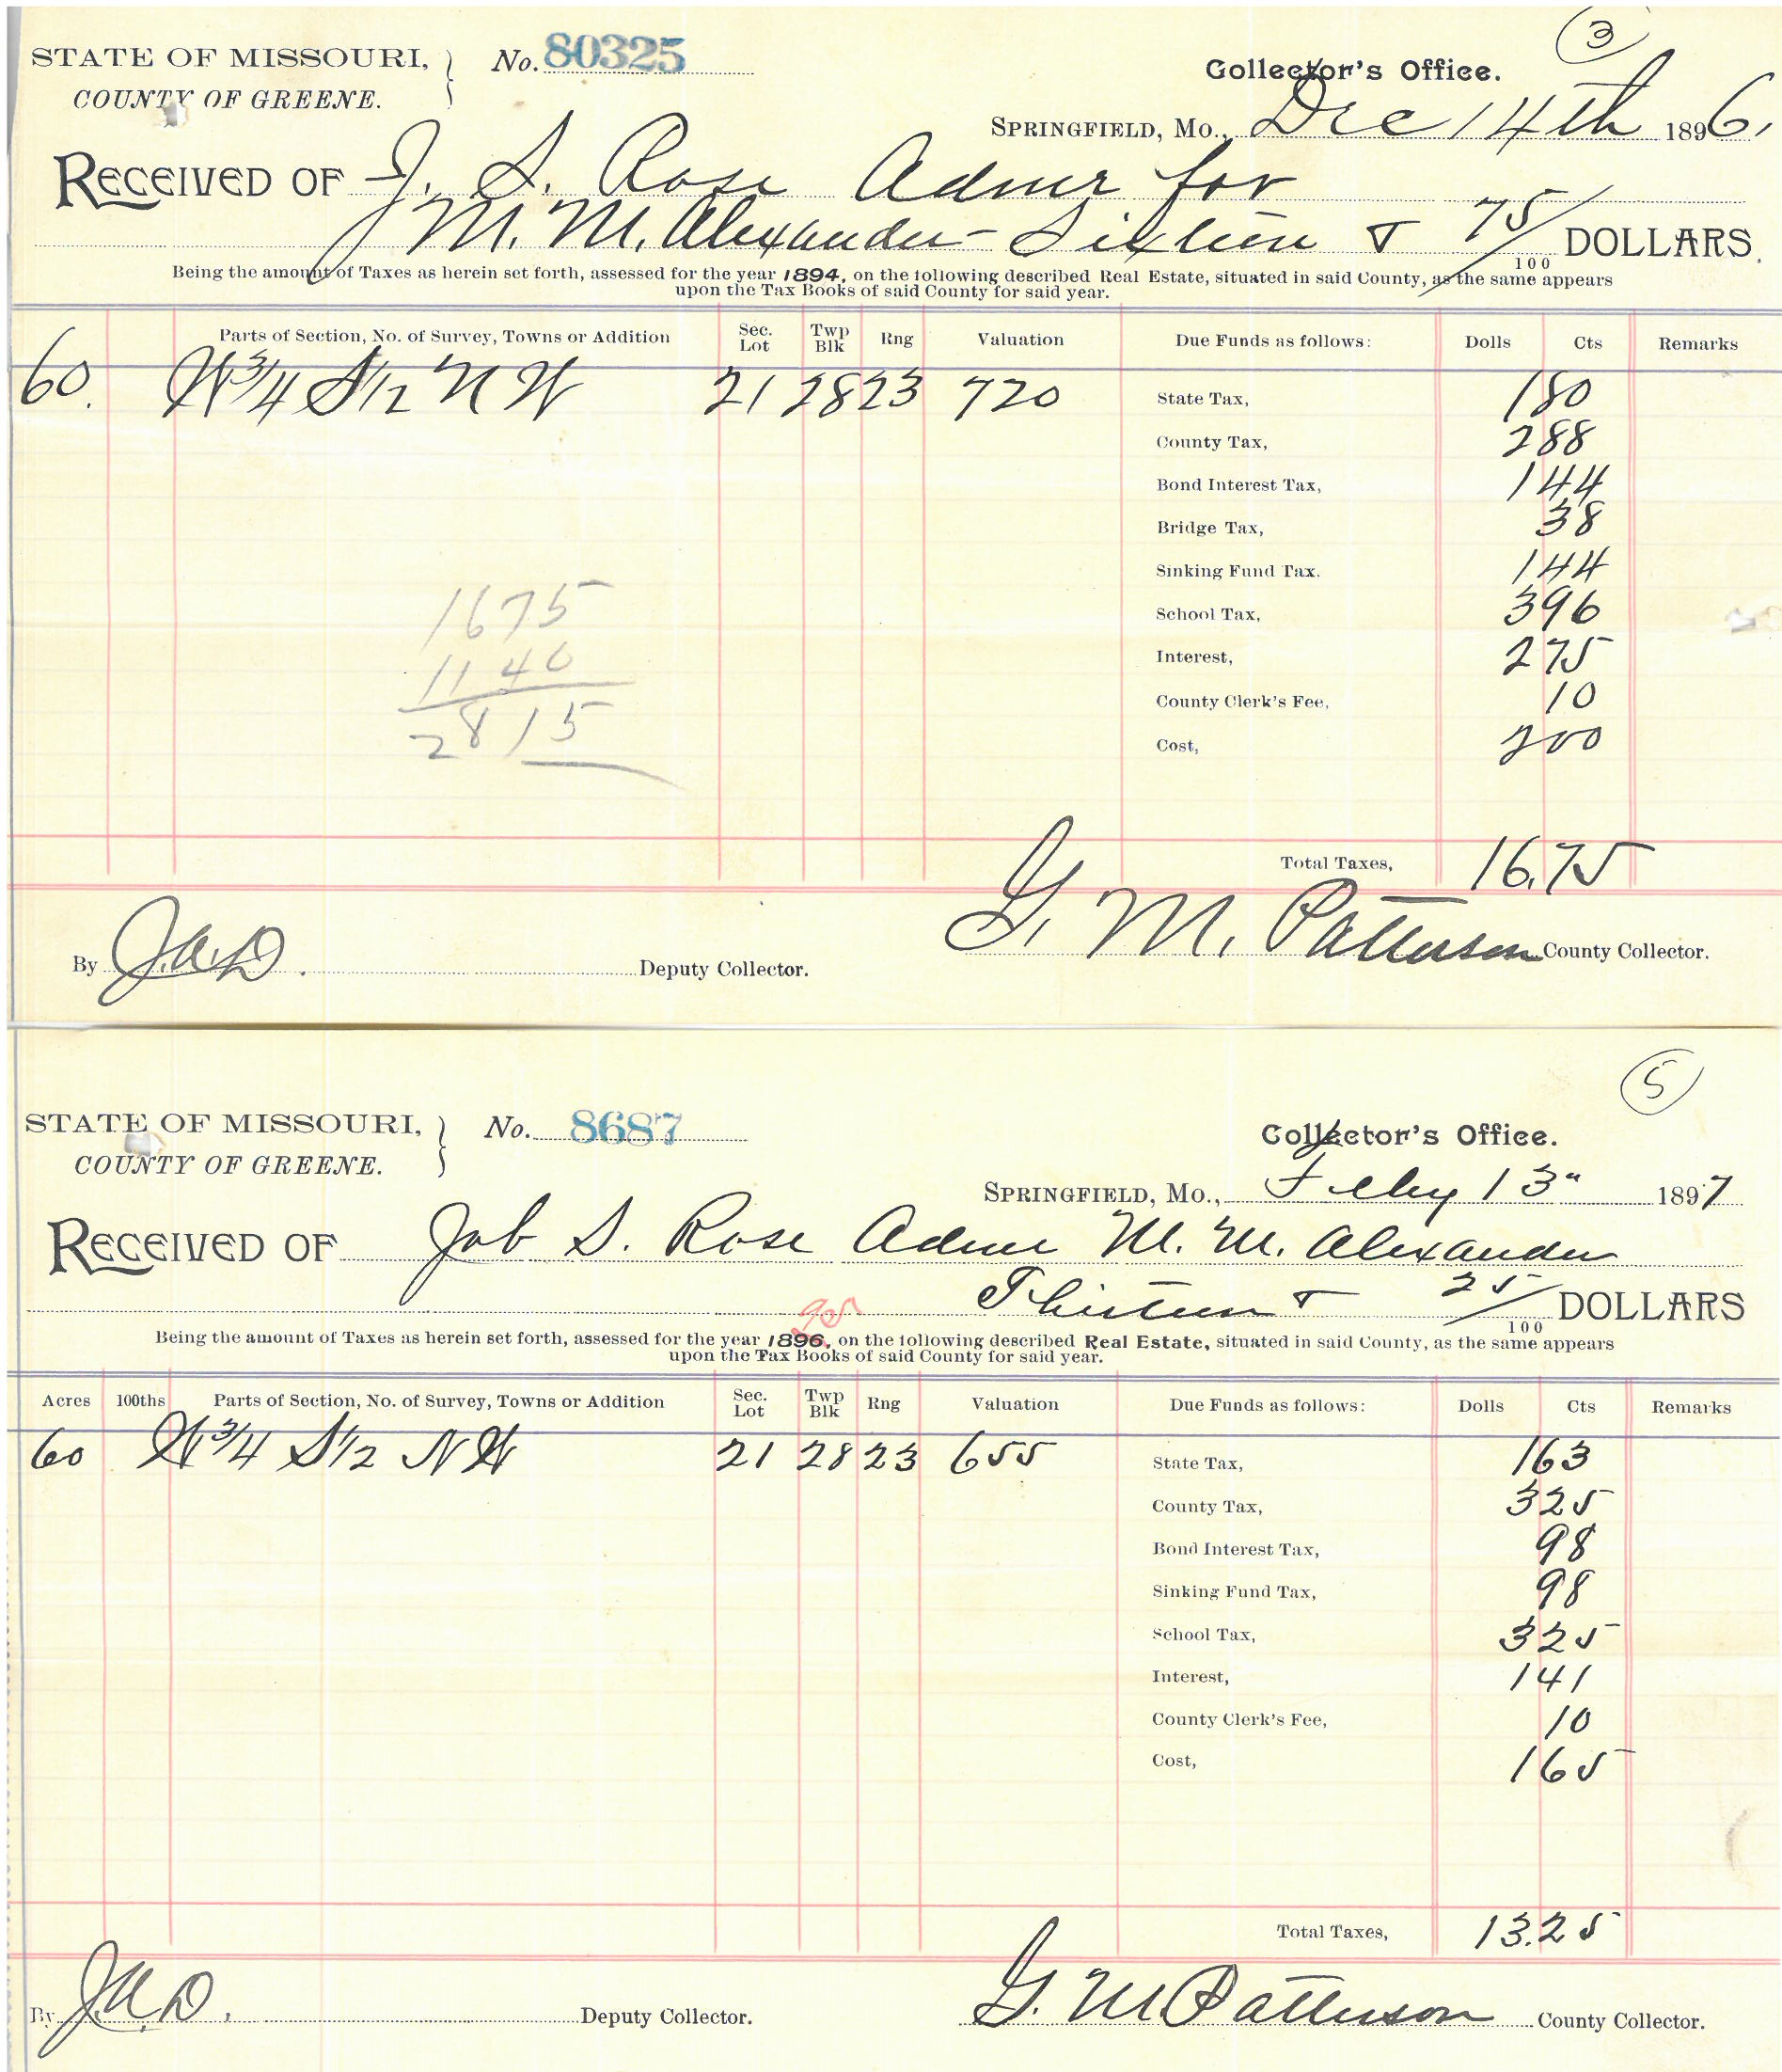 3
STATE OF MISSOURI, } No. 80325 Collector's Office.
COUNTY OF GREENE.
SPRINGFIELD, MO., Dec 14th 1896.
RECEIVED OF J. S. Rose Admr for
M. M. Alexander - Sixteen & 75/100 DOLLARS.
Being the amount of Taxes as herein set forth, assessed for the year 1894, on the following described Real Estate, situated in said County, as the same appears
upon the Tax Books of said County for said year.
Parts of Section, No. of Survey, Towns or Addition Sec. Lot Twp Blk Rng Valuation Due Funds as follows: Dolls Cts Remarks
60. W 3/4 S 1/2 N W 21 28 23 720 State Tax, 1 80
County Tax, 2 88
Bond Interest Tax, 1 44
Bridge Tax, 38
Sinking Fund Tax. 1 44
School Tax, 3 96
Interest, 2 75
County Clerk's Fee, 10
Cost, 2 00
1675
1140
2815
Total Taxes, 16.75
By J.A.D. Deputy Collector. G. M. Patterson County Collector.
5
STATE OF MISSOURI, } No. 8687 Collector's Office.
COUNTY OF GREENE.
SPRINGFIELD, MO., Feby 13" 1897
RECEIVED OF Job S. Rose Admr M. M. Alexander
Thirteen & 25/100 DOLLARS
95
Being the amount of Taxes as herein set forth, assessed for the year 1896, on the following described Real Estate, situated in said County, as the same appears
upon the Tax Books of said County for said year.
Acres 100ths Parts of Section, No. of Survey, Towns or Addition Sec. Lot Twp Blk Rng Valuation Due Funds as follows: Dolls Cts Remarks
60 W 3/4 S 1/2 N W 21 28 23 655 State Tax, 1 63
County Tax, 3 25
Bond Interest Tax, 98
Sinking Fund Tax, 98
School Tax, 3 25
Interest, 1 41
County Clerk's Fee, 10
Cost, 1 65
Total Taxes, 13.25
By J.A.D. Deputy Collector. G. M Patterson County Collector.